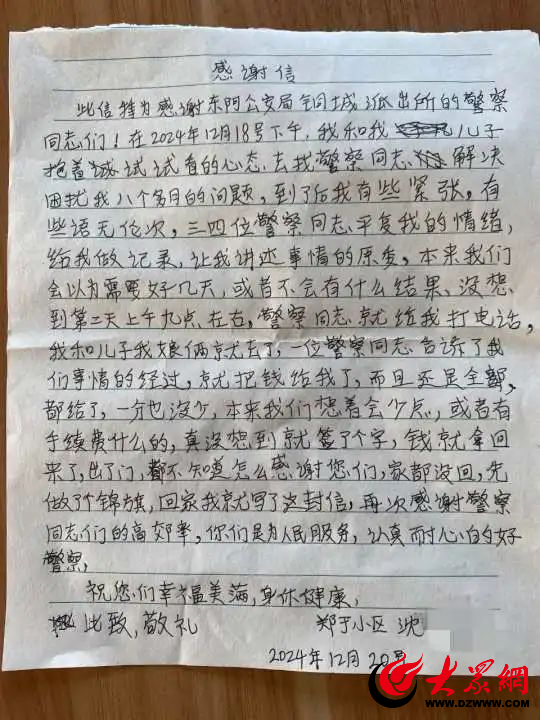 感谢信
此信特为感谢东阿公安局铜城派出所的警察
同志们！在2024年12月18号下午，我和我儿子
抱着试试看的心态，去找警察同志解决
困扰我八个多月的问题，到了后我有些紧张，有
些语无伦次，三四位警察同志平复我的情绪，
给我做记录，让我讲述事情的原委，本来我们
会以为需要好几天，或者不会有什么结果、没想
到第二天上午九点左右，警察同志就给我打电话，
我和儿子我娘俩就去了，一位警察同志告诉了我
们事情的经过，就把钱给我了，而且还是全部，
都给了，一分也没少，本来我们想着会少点，或者有
手续费什么的，真没想到就签了个字，钱就拿回
来了，出了门，都不知道怎么感谢您们，家都没回，先
做了个锦旗，回家我就写了这封信，再次感谢警察
同志们的高效率，你们是为人民服务，认真耐心的好
警察，
祝您们幸福美满，身体健康，
此致，敬礼 郑于小区 沈
2024年12月20号
大众网
WWW.DZWWW.COM